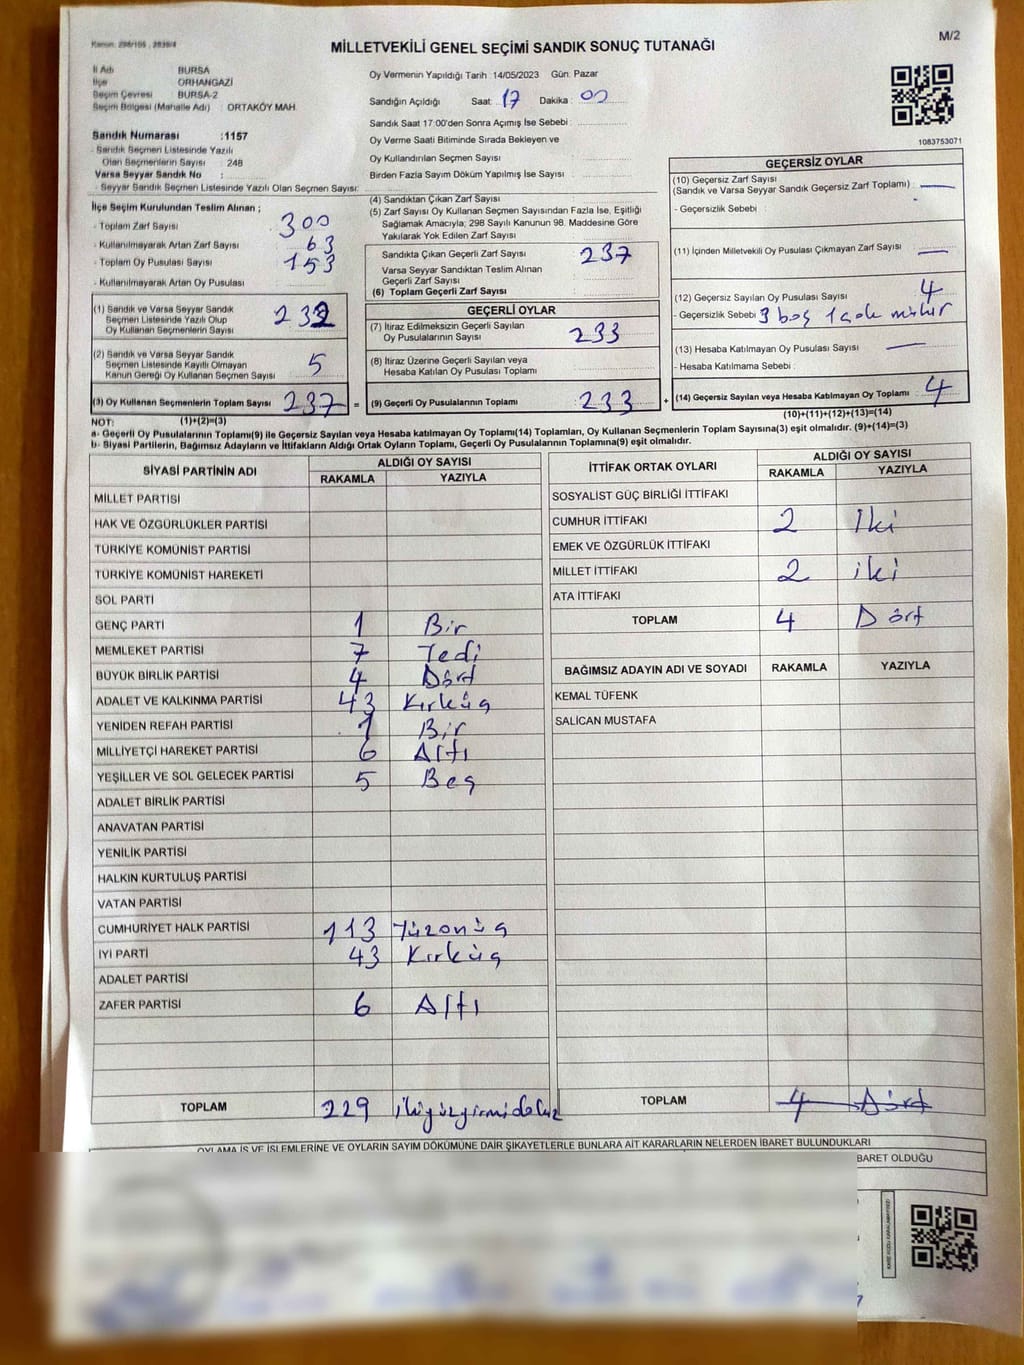 Kanun: 298/105 , 2839/4
MİLLETVEKİLİ GENEL SEÇİMİ SANDIK SONUÇ TUTANAĞI
M/2
İl Adı BURSA
İlçe ORHANGAZİ
Seçim Çevresi BURSA-2
Seçim Bölgesi (Mahalle Adı) : ORTAKÖY MAH.
Sandık Numarası :1157
- Sandık Seçmen Listesinde Yazılı
Olan Seçmenlerin Sayısı : 248
Varsa Seyyar Sandık No :
- Seyyar Sandık Seçmen Listesinde Yazılı Olan Seçmen Sayısı:
Oy Vermenin Yapıldığı Tarih :14/05/2023 Gün: Pazar
Sandığın Açıldığı Saat: 17 Dakika : 00
Sandık Saat 17:00'den Sonra Açımış İse Sebebi :
Oy Verme Saati Bitiminde Sırada Bekleyen ve
Oy Kullandırılan Seçmen Sayısı :
Birden Fazla Sayım Döküm Yapılmış İse Sayısı :
1083753071
İlçe Seçim Kurulundan Teslim Alınan ;
- Toplam Zarf Sayısı : 300
- Kullanılmayarak Artan Zarf Sayısı : 63
- Toplam Oy Pusulası Sayısı : 153
- Kullanılmayarak Artan Oy Pusulası :
(1) Sandık ve Varsa Seyyar Sandık
Seçmen Listesinde Yazılı Olup
Oy Kullanan Seçmenlerin Sayısı : 232
(2) Sandık ve Varsa Seyyar Sandık
Seçmen Listesinde Kayıtlı Olmayan
Kanun Gereği Oy Kullanan Seçmen Sayısı : 5
(3) Oy Kullanan Seçmenlerin Toplam Sayısı : 237
(1)+(2)=(3)
(4) Sandıktan Çıkan Zarf Sayısı :
(5) Zarf Sayısı Oy Kullanan Seçmen Sayısından Fazla İse, Eşitliği
Sağlamak Amacıyla; 298 Sayılı Kanunun 98. Maddesine Göre
Yakılarak Yok Edilen Zarf Sayısı :
Sandıkta Çıkan Geçerli Zarf Sayısı : 237
Varsa Seyyar Sandıktan Teslim Alınan
Geçerli Zarf Sayısı :
(6) Toplam Geçerli Zarf Sayısı :
GEÇERLİ OYLAR
(7) İtiraz Edilmeksizin Geçerli Sayılan
Oy Pusulalarının Sayısı : 233
(8) İtiraz Üzerine Geçerli Sayılan veya
Hesaba Katılan Oy Pusulası Toplamı :
= (9) Geçerli Oy Pusulalarının Toplamı : 233 +
GEÇERSİZ OYLAR
(10) Geçersiz Zarf Sayısı
(Sandık ve Varsa Seyyar Sandık Geçersiz Zarf Toplamı) : —
- Geçersizlik Sebebi :
(11) İçinden Milletvekili Oy Pusulası Çıkmayan Zarf Sayısı : —
(12) Geçersiz Sayılan Oy Pusulası Sayısı : 4
- Geçersizlik Sebebi : 3 boş 1 çok mühür
(13) Hesaba Katılmayan Oy Pusulası Sayısı : —
- Hesaba Katılmama Sebebi :
(14) Geçersiz Sayılan veya Hesaba Katılmayan Oy Toplamı : 4
(10)+(11)+(12)+(13)=(14)
NOT:
a- Geçerli Oy Pusulalarının Toplamı(9) ile Geçersiz Sayılan veya Hesaba Katılmayan Oy Toplamı(14) Toplamları, Oy Kullanan Seçmenlerin Toplam Sayısına(3) eşit olmalıdır. (9)+(14)=(3)
b- Siyasi Partilerin, Bağımsız Adayların ve İttifakların Aldığı Ortak Oyların Toplamı, Geçerli Oy Pusulalarının Toplamına(9) eşit olmalıdır.
SİYASİ PARTİNİN ADI ALDIĞI OY SAYISI
RAKAMLA YAZIYLA
MİLLET PARTİSİ
HAK VE ÖZGÜRLÜKLER PARTİSİ
TÜRKİYE KOMÜNİST PARTİSİ
TÜRKİYE KOMÜNİST HAREKETİ
SOL PARTİ
GENÇ PARTİ 1 Bir
MEMLEKET PARTİSİ 7 Yedi
BÜYÜK BİRLİK PARTİSİ 4 Dört
ADALET VE KALKINMA PARTİSİ 43 Kırküç
YENİDEN REFAH PARTİSİ 1 Bir
MİLLİYETÇİ HAREKET PARTİSİ 6 Altı
YEŞİLLER VE SOL GELECEK PARTİSİ 5 Beş
ADALET BİRLİK PARTİSİ
ANAVATAN PARTİSİ
YENİLİK PARTİSİ
HALKIN KURTULUŞ PARTİSİ
VATAN PARTİSİ
CUMHURİYET HALK PARTİSİ 113 Yüzonüç
İYİ PARTİ 43 Kırküç
ADALET PARTİSİ
ZAFER PARTİSİ 6 Altı
TOPLAM 229 ikiyüzyirmidokuz
İTTİFAK ORTAK OYLARI ALDIĞI OY SAYISI
RAKAMLA YAZIYLA
SOSYALİST GÜÇ BİRLİĞİ İTTİFAKI
CUMHUR İTTİFAKI 2 iki
EMEK VE ÖZGÜRLÜK İTTİFAKI
MİLLET İTTİFAKI 2 iki
ATA İTTİFAKI
TOPLAM 4 Dört
BAĞIMSIZ ADAYIN ADI VE SOYADI RAKAMLA YAZIYLA
KEMAL TÜFENK
SALİCAN MUSTAFA
TOPLAM 4 Dört
OYLAMA İŞ VE İŞLEMLERİNE VE OYLARIN SAYIM DÖKÜMÜNE DAİR ŞİKAYETLERLE BUNLARA AİT KARARLARIN NELERDEN İBARET BULUNDUKLARI
BARET OLDUĞU